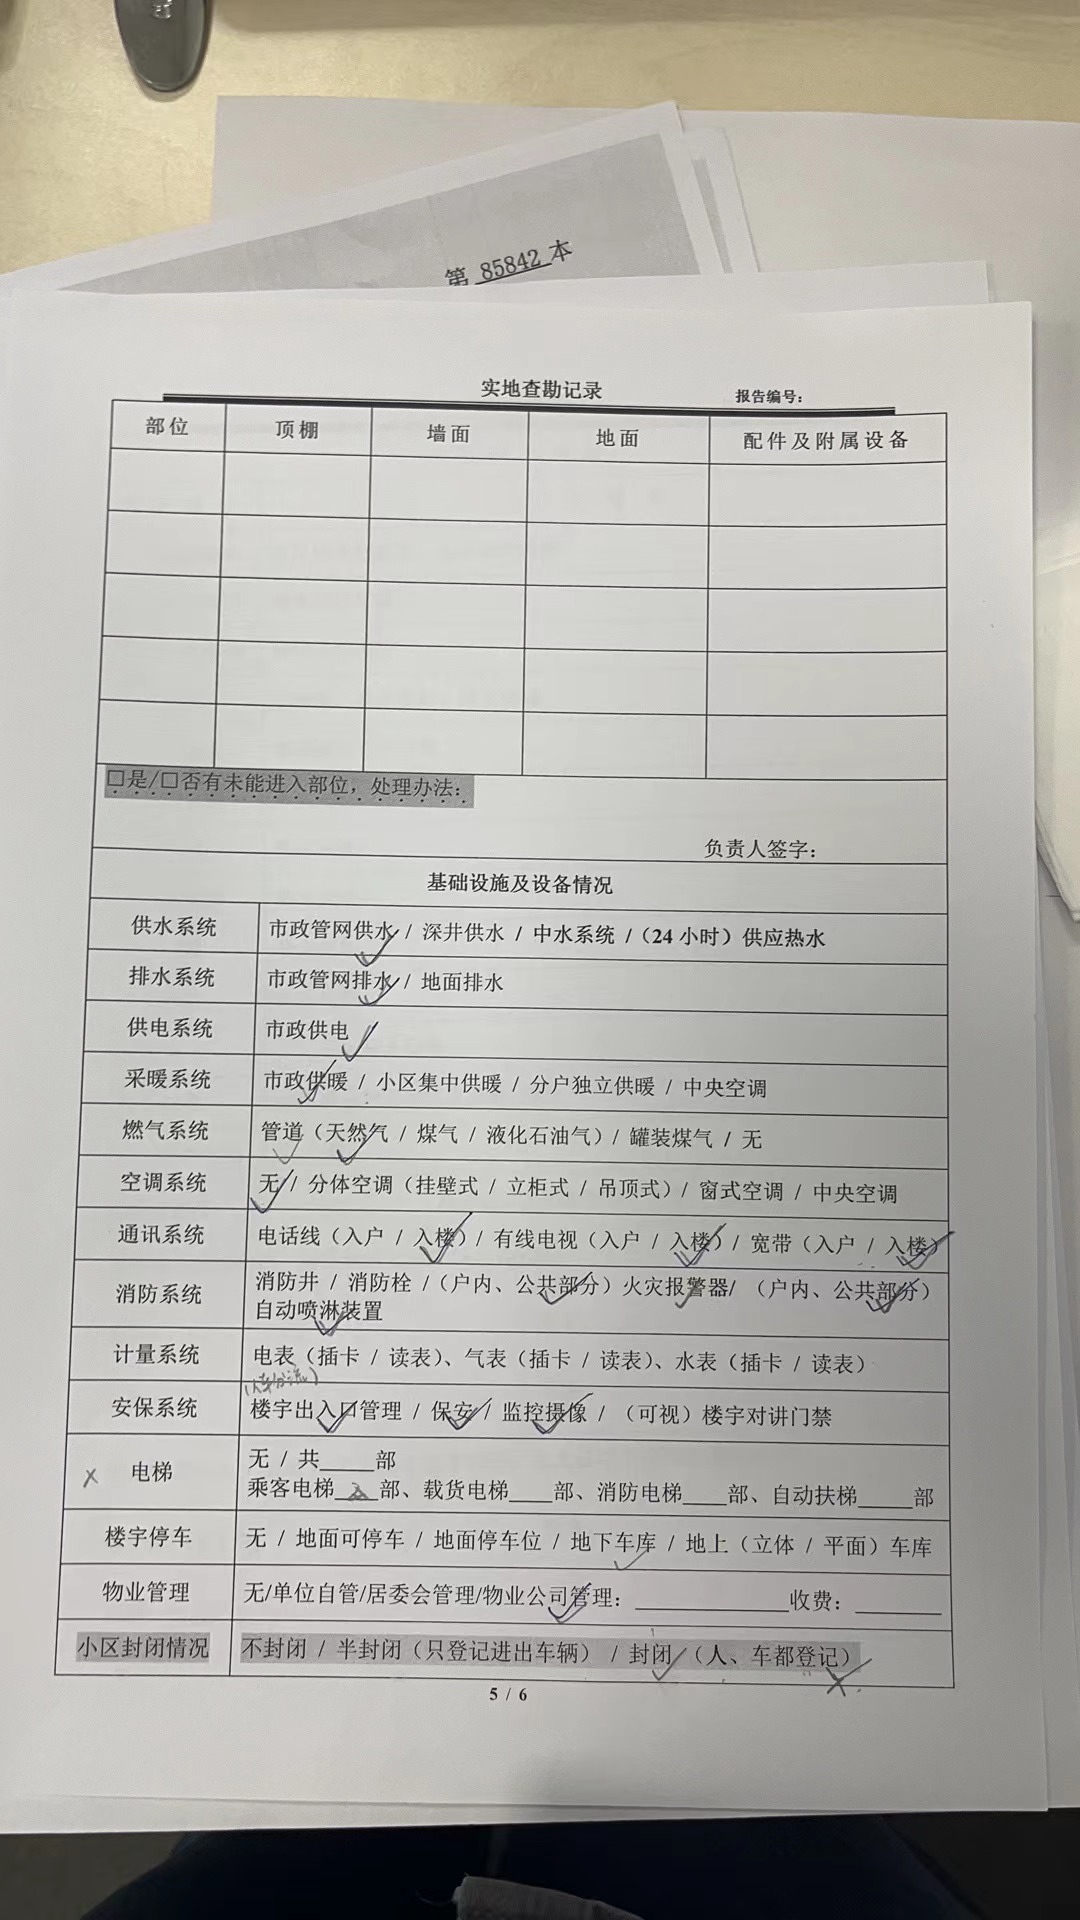 第 85842 本
实地查勘记录 报告编号：
部位 顶棚 墙面 地面 配件及附属设备
□是/□否有未能进入部位，处理办法：
负责人签字：
基础设施及设备情况
供水系统 市政管网供水 / 深井供水 / 中水系统 /（24 小时）供应热水
排水系统 市政管网排水 / 地面排水
供电系统 市政供电
采暖系统 市政供暖 / 小区集中供暖 / 分户独立供暖 / 中央空调
燃气系统 管道（天然气 / 煤气 / 液化石油气）/ 罐装煤气 / 无
空调系统 无 / 分体空调（挂壁式 / 立柜式 / 吊顶式）/ 窗式空调 / 中央空调
通讯系统 电话线（入户 / 入楼）/ 有线电视（入户 / 入楼）/ 宽带（入户 / 入楼）
消防系统 消防井 / 消防栓 /（户内、公共部分）火灾报警器/ （户内、公共部分）
自动喷淋装置
计量系统 电表（插卡 / 读表）、气表（插卡 / 读表）、水表（插卡 / 读表）
（人车分流）
安保系统 楼宇出入口管理 / 保安 / 监控摄像 / （可视）楼宇对讲门禁
电梯 无 / 共____部
乘客电梯____部、载货电梯____部、消防电梯____部、自动扶梯____部
楼宇停车 无 / 地面可停车 / 地面停车位 / 地下车库 / 地上（立体 / 平面）车库
物业管理 无/单位自管/居委会管理/物业公司管理：____________收费：______
小区封闭情况 不封闭 / 半封闭（只登记进出车辆） / 封闭 （人、车都登记）
5 / 6